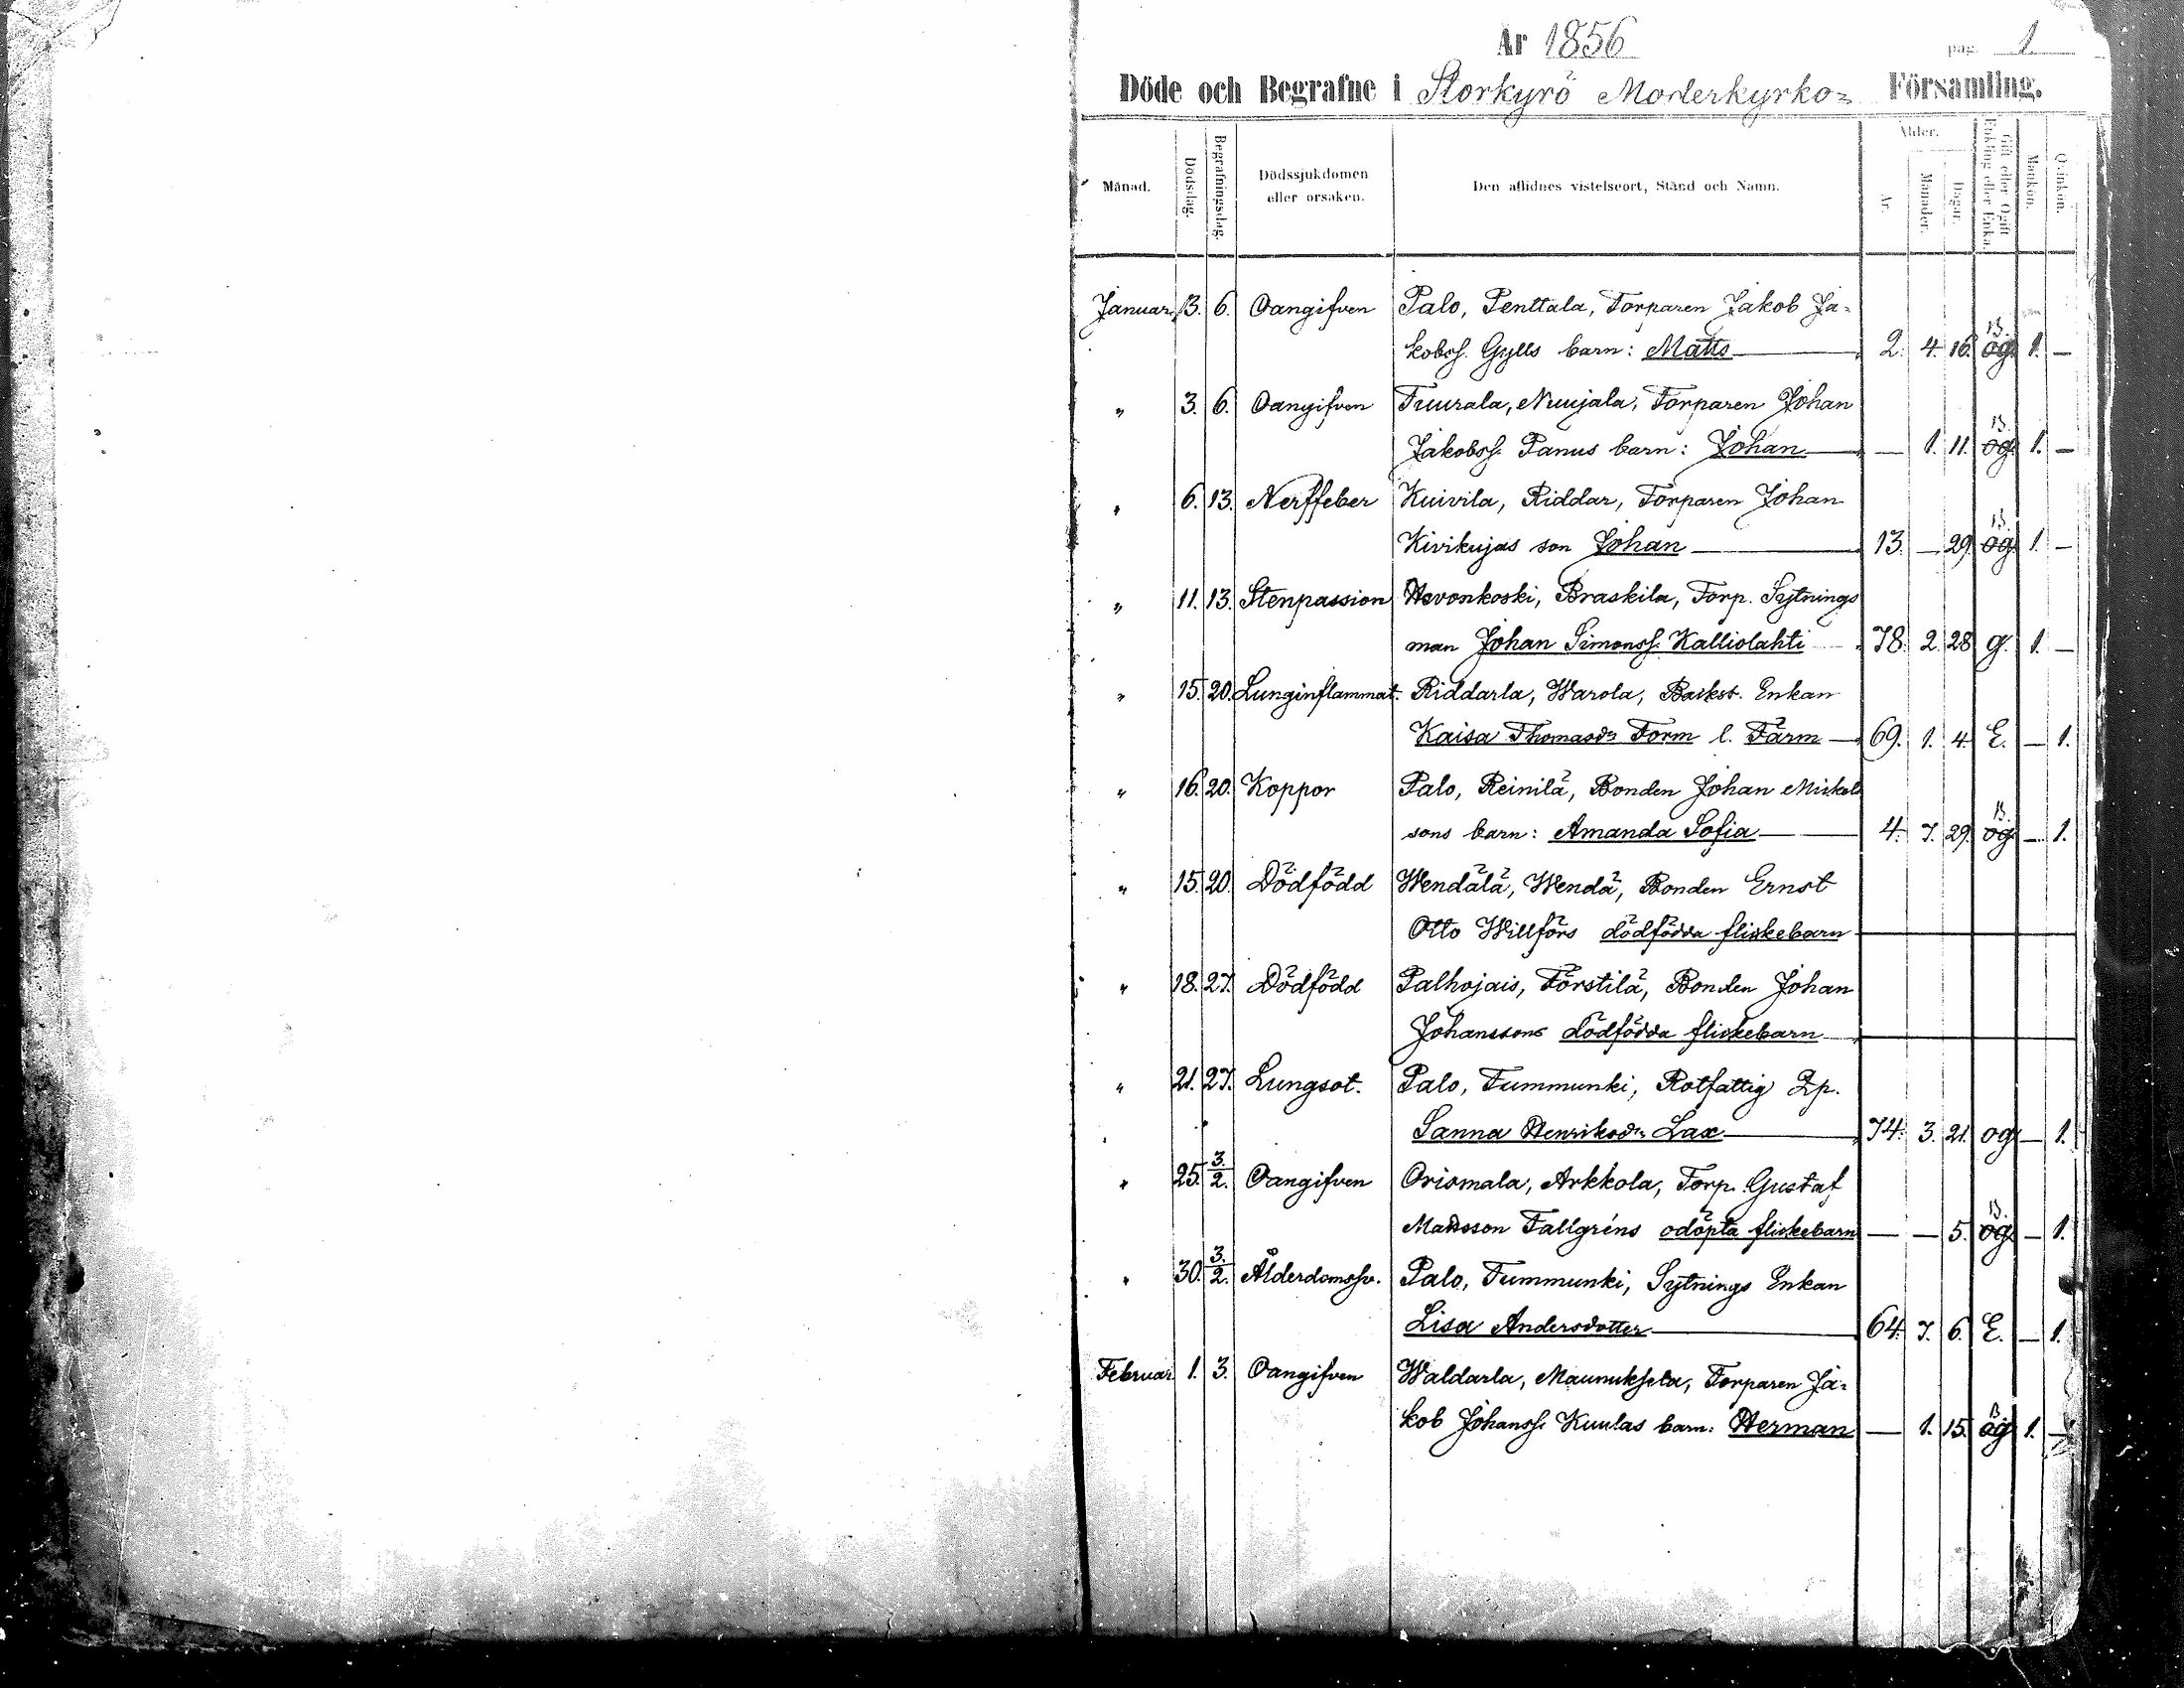 År 1856 pag. 1.
Döde och Begrafne i Storkyrö Moderkyrko= Församling.
Månad. Dödsdag. Begrafningsdag. Dödssjukdomen eller orsaken. Den aflidnes vistelseort, Stånd och Namn. Ålder. År. Månader. Dagar. Gift eller Ogift Enkling eller Enka. Mankön. Qvinkön.
Januar. 3. 6. Oangifven Palo, Penttala, Torparen Jakob Ja=
kobss. Gylls barn: Matts 2. 4. 16. B. og. 1. —
" 3. 6. Oangifven Tuurala, Nuujala, Torparen Johan
Jakobss. Panus barn: Johan — 1. 11. B. og. 1. —
" 6. 13. Nerffeber Kuivila, Riddar, Torparen Johan
Kivikujas son Johan 13. — 29. B. og 1. —
" 11. 13. Stenpassion Hevonkoski, Braskila, Torp. Sytnings
man Johan Simonss. Kalliolahti 78. 2. 28 g. 1. —
" 15. 20. Lunginflammat. Riddarla, Warola, Backst. Enkan
Kaisa Thomasdr Form l. Färm 69. 1. 4. E. — 1.
" 16. 20. Koppor Palo, Reinilä, Bonden Johan Mickel
sons barn: Amanda Sofia 4. 7. 29. B. og — 1.
" 15. 20. Dödfödd Wendälä, Wendä, Bonden Ernst
Otto Willförs dödfödda flickebarn
" 18. 27. Dödfödd Palhojais, Förstilä, Bonden Johan
Johanssons dödfödda flickebarn
" 21. 27. Lungsot. Palo, Tummunki, Rotfattig Qp.
Sanna Henriksdr Lax 74. 3. 21. og — 1.
" 25. 3./2. Oangifven Orismala, Arkkola, Torp. Gustaf
Mattsson Tallgréns odöpta flickebarn — — 5. B. og. — 1.
" 30. 3./2. Ålderdomssv. Palo, Tummunki, Sytnings Enkan
Lisa Andersdotter 64. 7. 6. E. — 1.
Februar. 1. 3. Oangifven Waldarla, Maunuksela, Torparen Ja=
kob Johanss. Kuulas barn: Herman — 1. 15. B. og 1. —